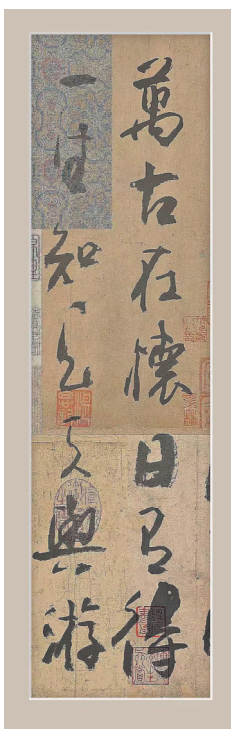 萬古在懷日有得
一生知己天與游